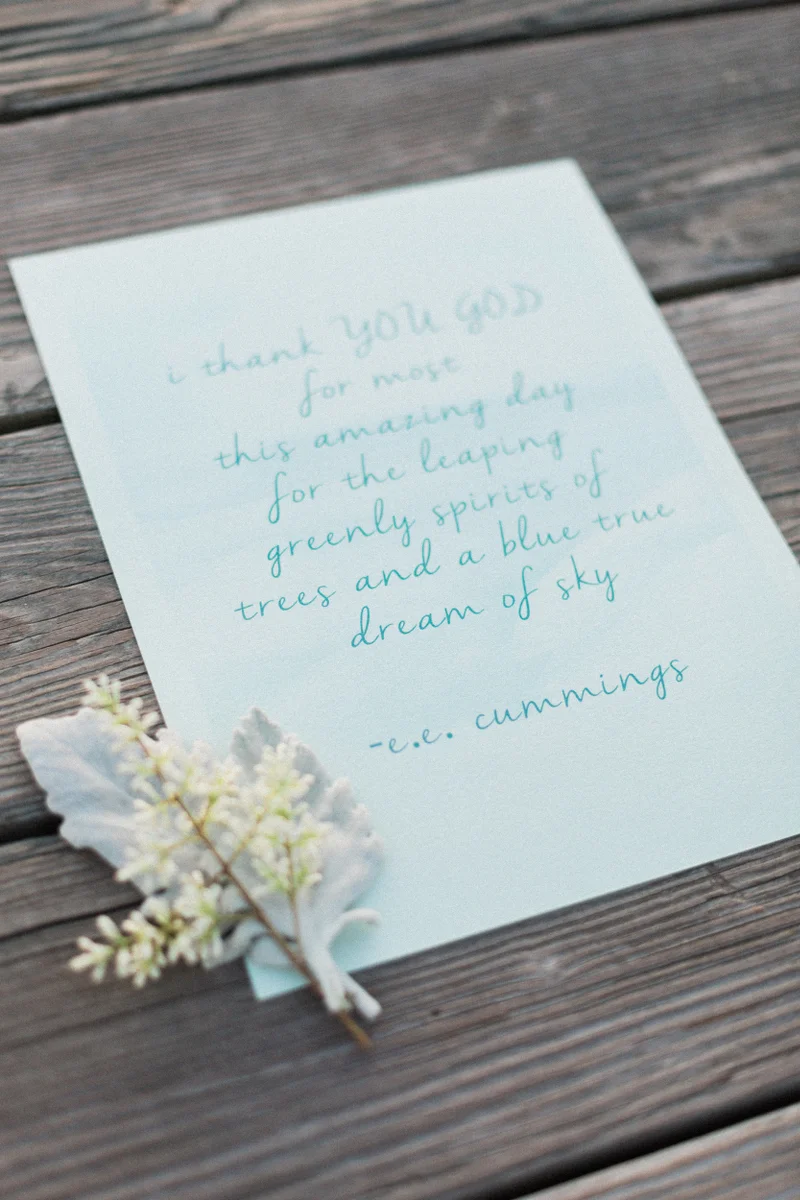 i thank YOU GOD
for most
this amazing day
for the leaping
greenly spirits of
trees and a blue true
dream of sky
-e.e. cummings